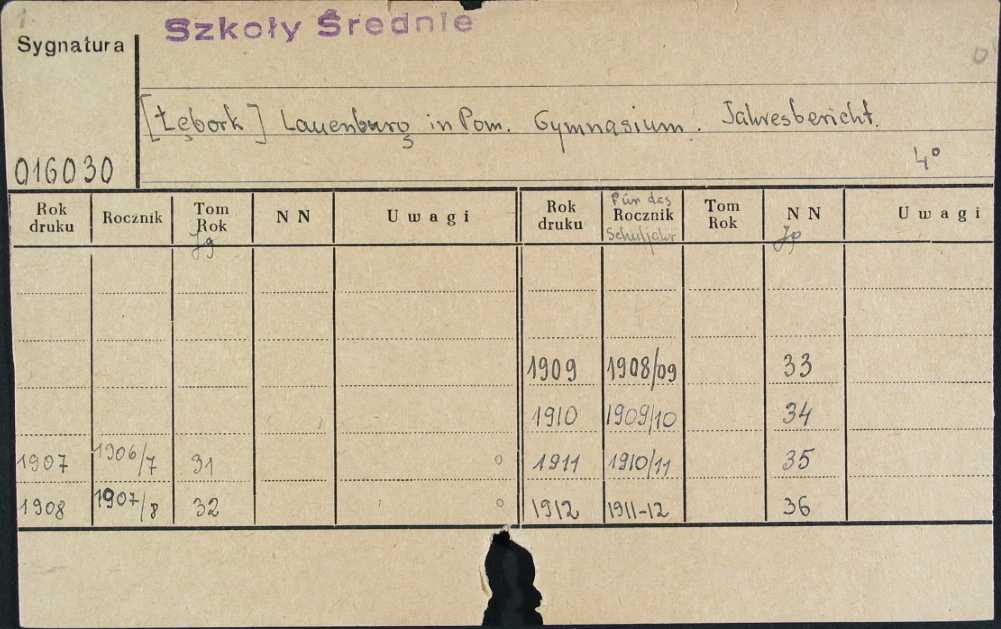 Szkoły Średnie
Sygnatura
[Łębork] Lauenburg in Pom. Gymnasium. Jahresbericht.
016030
4°
Rok druku Rocznik Tom Rok NN Uwagi Rok druku Für das Rocznik Schuljahr Tom Rok NN Uwagi
Jg
1909 1908/09 33
1910 1909/10 34
1907 1906/7 31 1911 1910/11 35
1908 1907/8 32 1912 1911-12 36